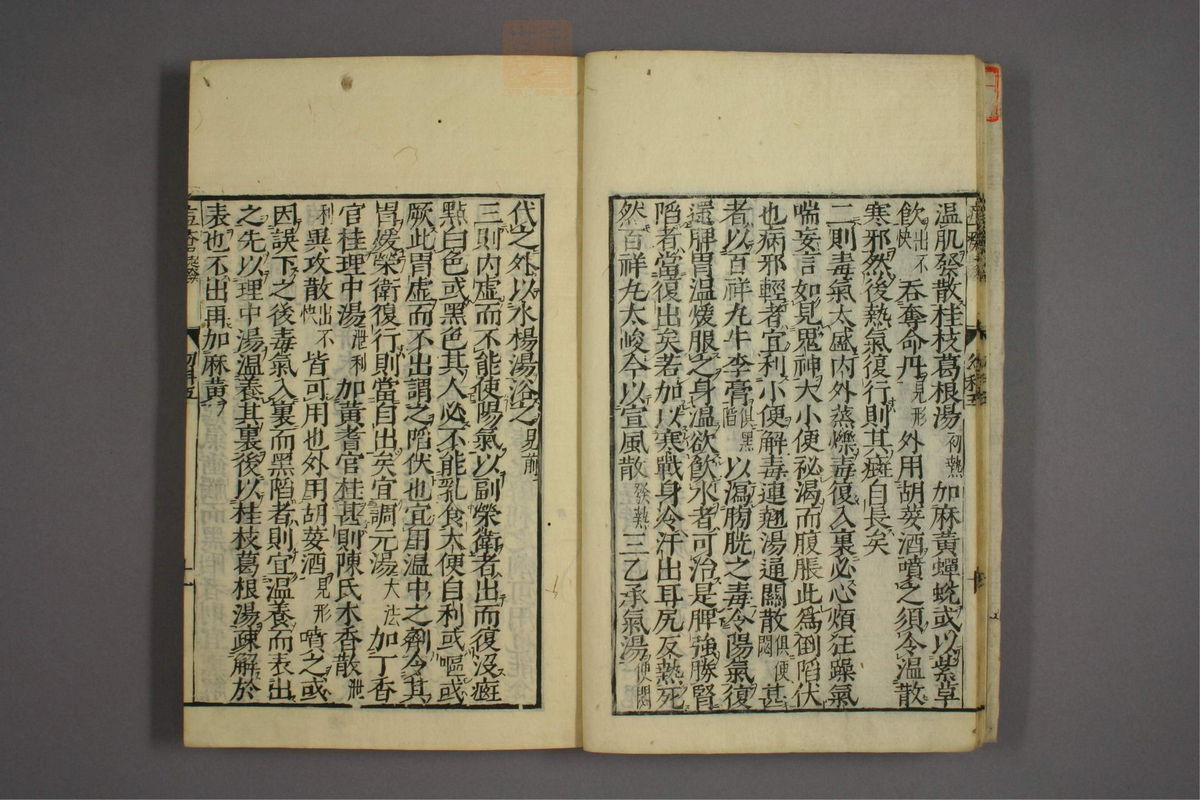 温肌發散桂枝葛根湯初熱加麻黄蟬蛻或以紫草
飲出不快吞奪命丹見形外用胡荽酒噴之須令温散
寒邪然後熱氣復行則其癍自長矣
二則毒氣太盛内外蒸爍毒復入裏必心煩狂躁氣
喘妄言如見鬼神大小便祕渴而腹脹此爲倒陷伏
也病邪輕者宜利小便解毒連翹湯通關散俱便閟甚
者以百祥丸牛李膏俱黑陷以瀉膀胱之毒令陽氣復
還脾胃温煖服之身温欲飲水者可治是脾強勝腎
陷者當復出矣若加以寒戰身冷汗出耳尻反熱死
然百祥丸太峻今以宣風散發熱三乙承氣湯便閟
代之外以水楊湯浴之見前
三則内虚而不能使陽氣以副榮衛者出而復没癍
點白色或黑色其人必不能乳食大便自利或嘔或
厥此胃虚而不出謂之陷伏也宜用温中之劑令其
胃煖榮衛復行則當自出矣宜調元湯大法加丁香
官桂理中湯泄利加黄耆官桂甚則陳氏木香散泄
利異攻散出不快皆可用也外用胡荽酒見形噴之或
因誤下之後毒氣入裏而黑陷者則宜温養而表出
之先以理中湯温養其裏後以桂枝葛根湯疎解於
表也不出再加麻黄